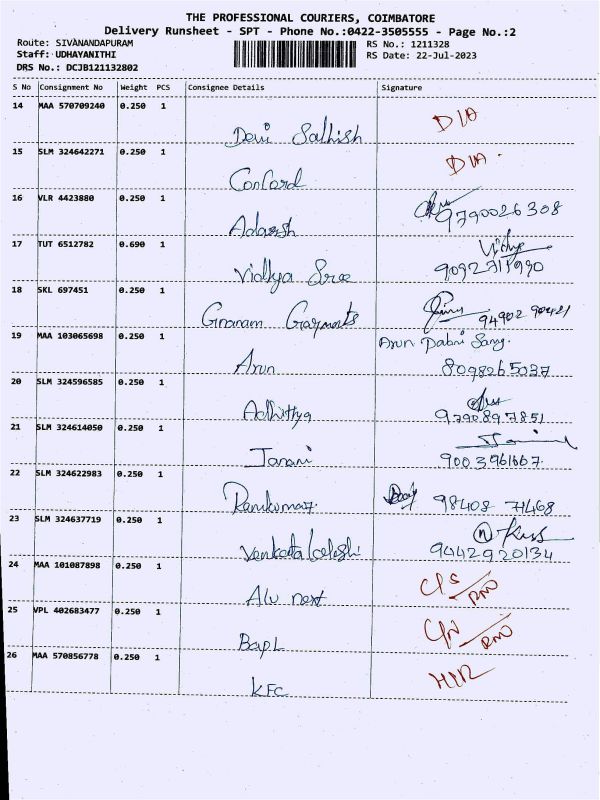 THE PROFESSIONAL COURIERS, COIMBATORE
Delivery Runsheet - SPT - Phone No.:0422-3505555 - Page No.:2
Route: SIVANANDAPURAM RS No.: 1211328
Staff: UDHAYANITHI RS Date: 22-Jul-2023
DRS No.: DCJB121132802
S No Consignment No Weight PCS Consignee Details Signature
14 MAA 570709240 0.250 1
Devi Sathish D/A
15 SLM 324642271 0.250 1
Concord D/A.
16 VLR 4423880 0.250 1
Adarsh 9790026308
17 TUT 6512782 0.690 1
Vidhya Sree
18 SKL 697451 0.250 1
Gnanam Garments 94902 90421
19 MAA 103065698 0.250 1
Arun 8098265037
20 SLM 324596585 0.250 1
Adhithya 9790897851
21 SLM 324614050 0.250 1
Janani 9003961667.
22 SLM 324622983 0.250 1
Ramkumar 98408 71468
23 SLM 324637719 0.250 1
9442920134
24 MAA 101087898 0.250 1
25 VPL 402683477 0.250 1
BapL
26 MAA 570856778 0.250 1
KFC